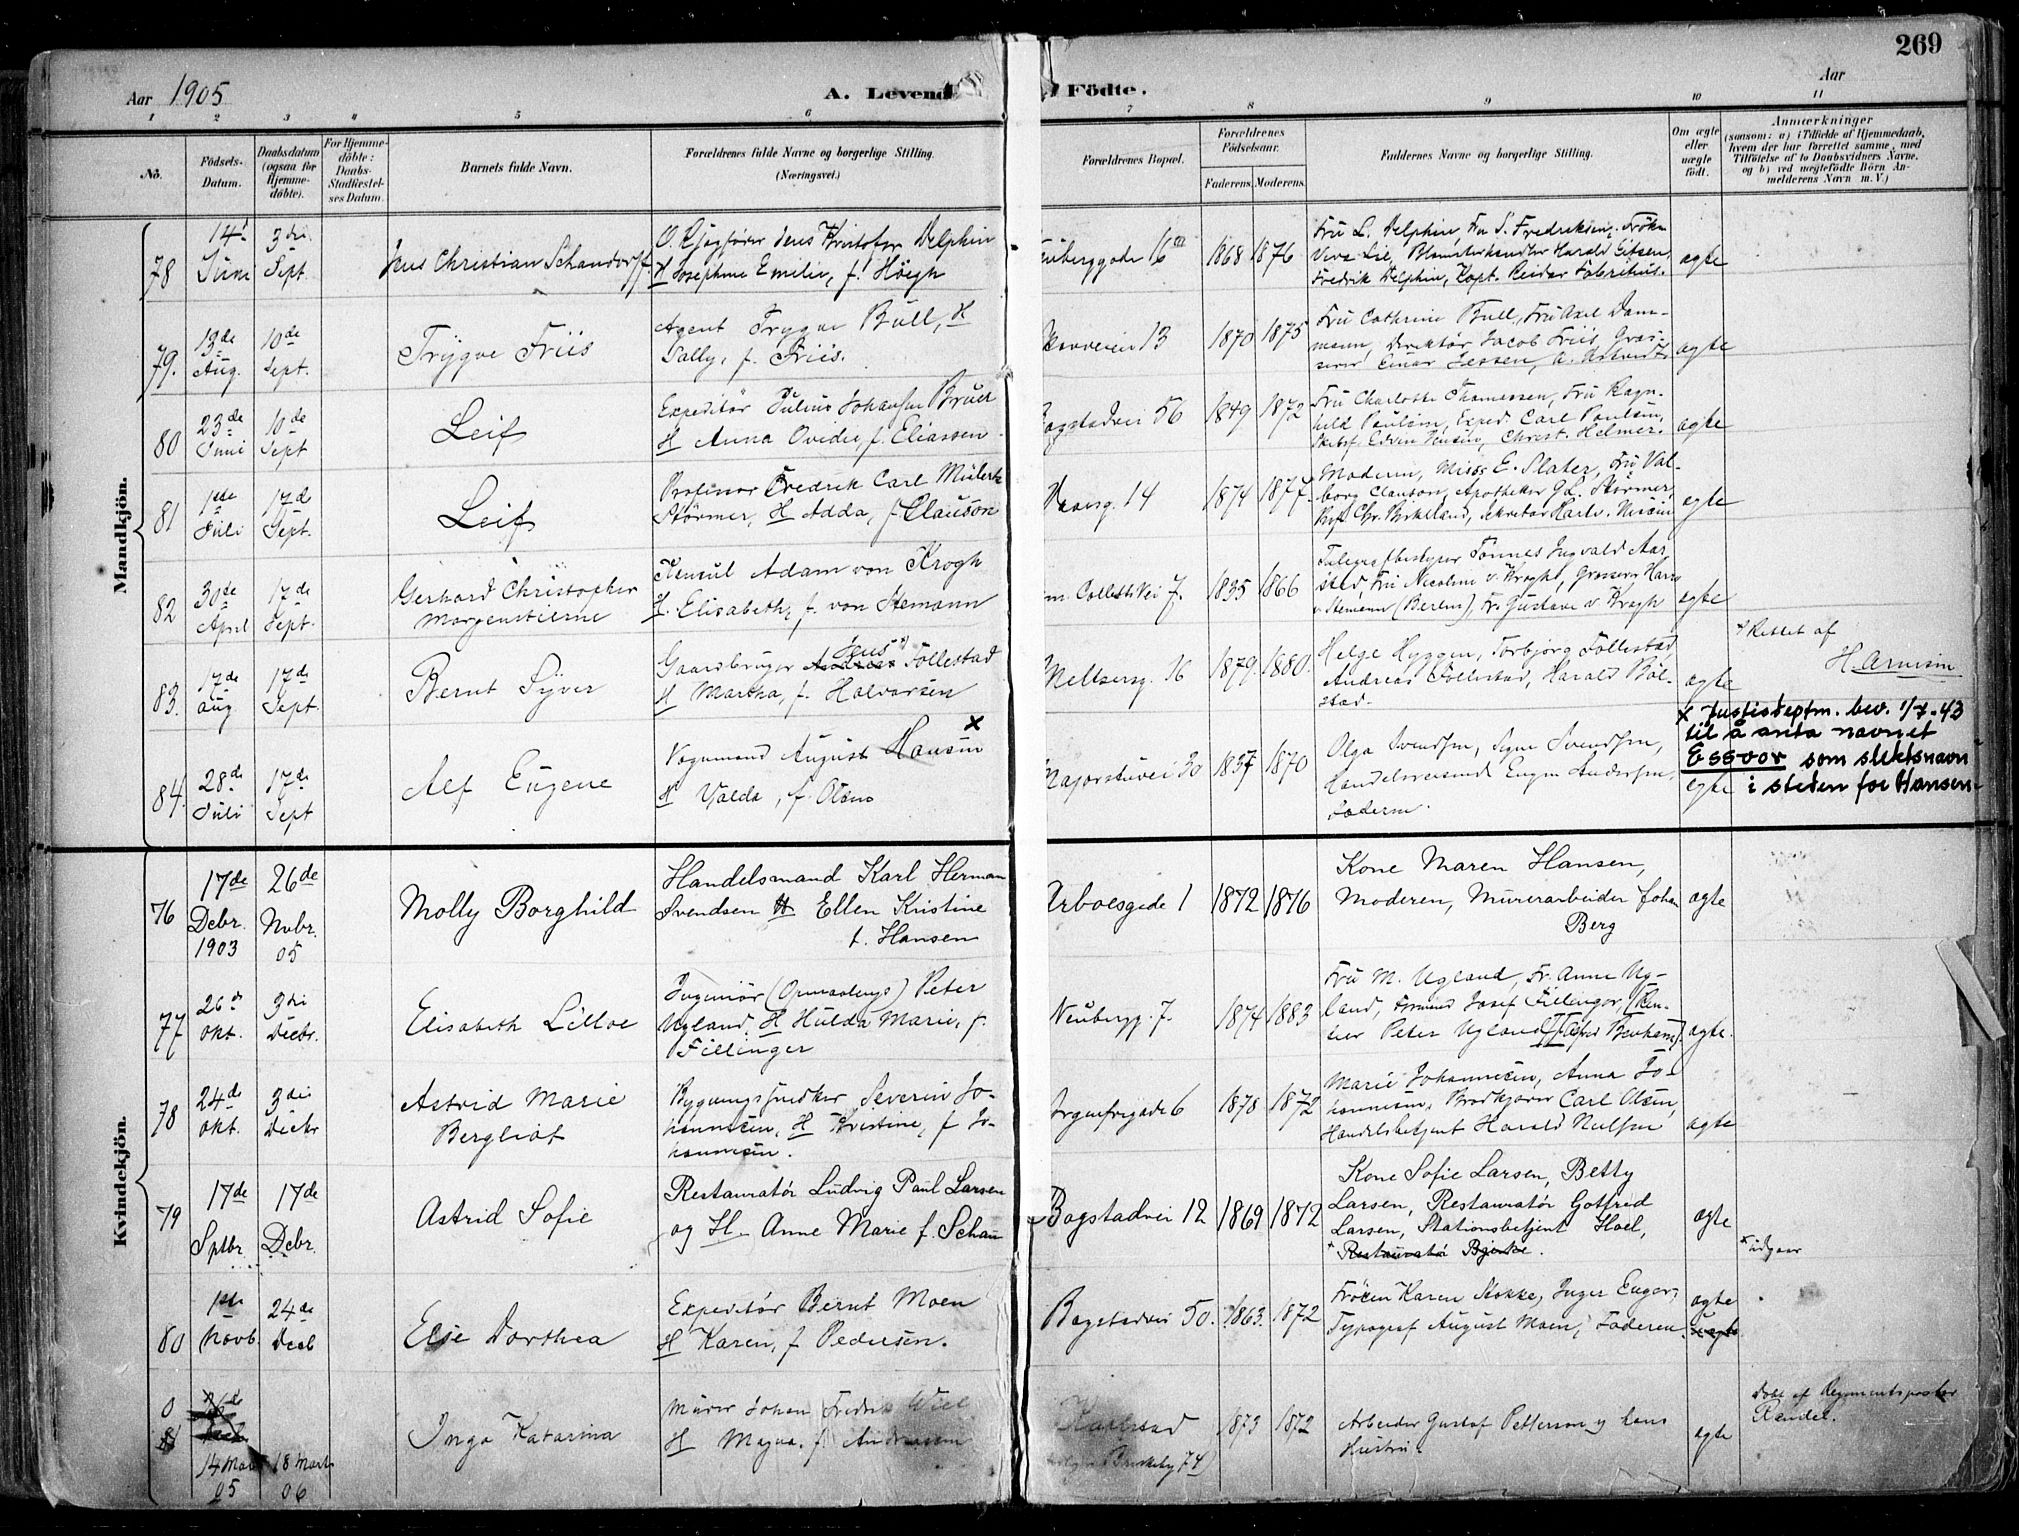 269
Aar 1905
A. Levend
Födte.
Aar
1 2 3 4 5 6 7 8 9 10 11
No.
Födsels-
Datum.
Daabsdatum
(ogsaa for
Hjemme-
döbte).
For Hjemme-
döbte:
Daabs-
Stadfæstel-
ses Datum.
Barnets fulde Navn.
Forældrenes fulde Navne og borgerlige Stilling.
(Næringsvei.)
Forældrenes Bopæl.
Forældrenes
Födselsaar.
Faderens.
Moderens.
Faddernes Navne og borgerlige Stilling.
Om ægte
eller
uægte
födt.
Anmærkninger
(saasom: a) i Tilfælde af Hjemmedaab,
hvem der har forrettet samme, med
Tilföielse af to Daabsvidners Navne,
og b) ved uægtefödte Börn An-
melderens Navn m. V.)
Mandkjön.
78
14
Juni
3die
Sept.
Jens Christian Schandorff
Jens Kristofer Delphin
H Josephine Emilie, f. Höegh
16
1868
1876
Fru L. Delphin, Fru S. Fredriksen, Frökn
Viva Lie, Blomsterhandler Harald
Fredrik Delphin, Kapt. Reidar Fabritius.
ægte
79.
13de
Aug.
10de
Sept.
Trygve Friis
Agent Trygve Bull, H
Sally, f. Friis.
13
1870
1875
Fru Cathrine Bull, Fru Axel Dam-
mann, direktör Jacob Friis, Gros-
serer Einar Jessen,
ægte
80
23de
Juni
10de
Sept
Leif
Expeditör Julius Johansen Bruer
H Anna Ovidia, f. Eliassen
Bogstadvei 56
1849
1872
Fru Charlotte Thomassen, Fru Ragn-
hild Paulsen, Exped. Carl Paulsen,
Edvin Jensen, Christ. Helmer.
ægte
81
1ste
Juli
17de
Sept.
Leif
Professor Fredrik Carl Mülertz
Størmer, H Adda, f. Clauson
14
1874
1877.
Moderen, Miss E. Slater, Fru Val-
borg Clauson, Apotheker G. L. Størmer,
Prof. Chr. Birkeland, Sekretær Hartv. Nissen
ægte
82
30de
April
17de
Sept.
Gerhard Christopher
Morgenstierne
Konsul Adam von Krogh
H. Elisabeth, f. von Stemann
Colletts Vei 7.
1835
1866
Telegrafbestyrer Tønnes Ingvald Aar-
stad, Fru Nicoline v. Krogh, Grosserer Hans
v. Stemann (Berlin), Fr. Gustava v. Krogh
ægte
83.
17de
Aug.
17de
Sept.
Bernt Syver
Gaardbruger Andreas Jens x) Follestad
H Martha, f. Halvorsen
Meltzersg. 16
1879.
1880.
Helge Hyggen, Torbjörg Follestad
Andreas Follestad, Harald Böl-
stad.
ægte
x) Rettet af
H. Arnesen
84.
28de
Juli
17de
Sept
Alf Eugene
Vognmand August Hansen x
H Valda, f. Olsen
Majorstuvei 30
1837
1870
Olga Svendsen, Signe Svendsen,
Handelsreisende Eugen Andersen,
Faderen.
ægte
x Justisdeptm. bev. 1/7-43
til å anta navnet
Essvor som slektsnavn
i steden for Hansen.
Kvindekjön.
76
17de
Decbr.
1903
26de
Novbr.
05
Molly Borghild
Handelsmand Karl Herman
Svendsen H Ellen Kristine
f. Hansen
Arboesgade 1
1872
1876
Kone Maren Hansen,
Moderen, Murerarbeider Johan
Berg
ægte
77
26de
Okt.
3die
Decbr.
Elisabeth Lilloe
Ingeniör (Opmaalings) Peter
Ugland, H Hulda Marie, f.
Fillinger
Neubergg. 7.
1874
1883
Fru M. Ugland, Fr. Anna Ug-
land, Formand Josef Fillinger, (Ren-
tier Peter Ugland)
ægte.
78
24de
Okt.
3die
Decbr
Astrid Marie
Bergliot
Bygningssnedker Severin Jo-
hannesen, H Kristine, f. Jo-
hannesen.
Jörgensfrigade 6
1878
1872
Marie Johannesen, Anna Jo-
hannesen, Brödkjörer Carl Olsen,
Handelsbetjent Harald Nielsen
ægte
79
17de
Septbr.
17de
Decbr.
Astrid Sofie
Restauratør Ludvig Paul Larsen
og H. Anne Marie f. Schau
Bogstadvei 12
1869
1872
Kone Sofie Larsen, Betty
Larsen, Restauratør Gotfred
Larsen, Stationsbetjent Hoel,
x Restauratør Bjerke.
ægte
x udgaar
80
1ste
Novb.
24de
Decb
Else Dorthea
Expeditør Bernt Moen
H Karen, f. Pedersen.
Bogstadvei 50.
1863.
1872
Fröken Karen Stokke, Inger Enger,
Typograf August Moen, Faderen.
ægte
uægte
0
81
14 Mars
05
18 Marts
06
Inga Katarina
Murer Johan Fredrik Wiel
H Magna, f. Andresen
Karlstad
Briskeby 74)
1873
1872
Arbeider Gustaf Petterson og hans
Hustru.
ægte
Döbt af Regimentspastor
Rendel.